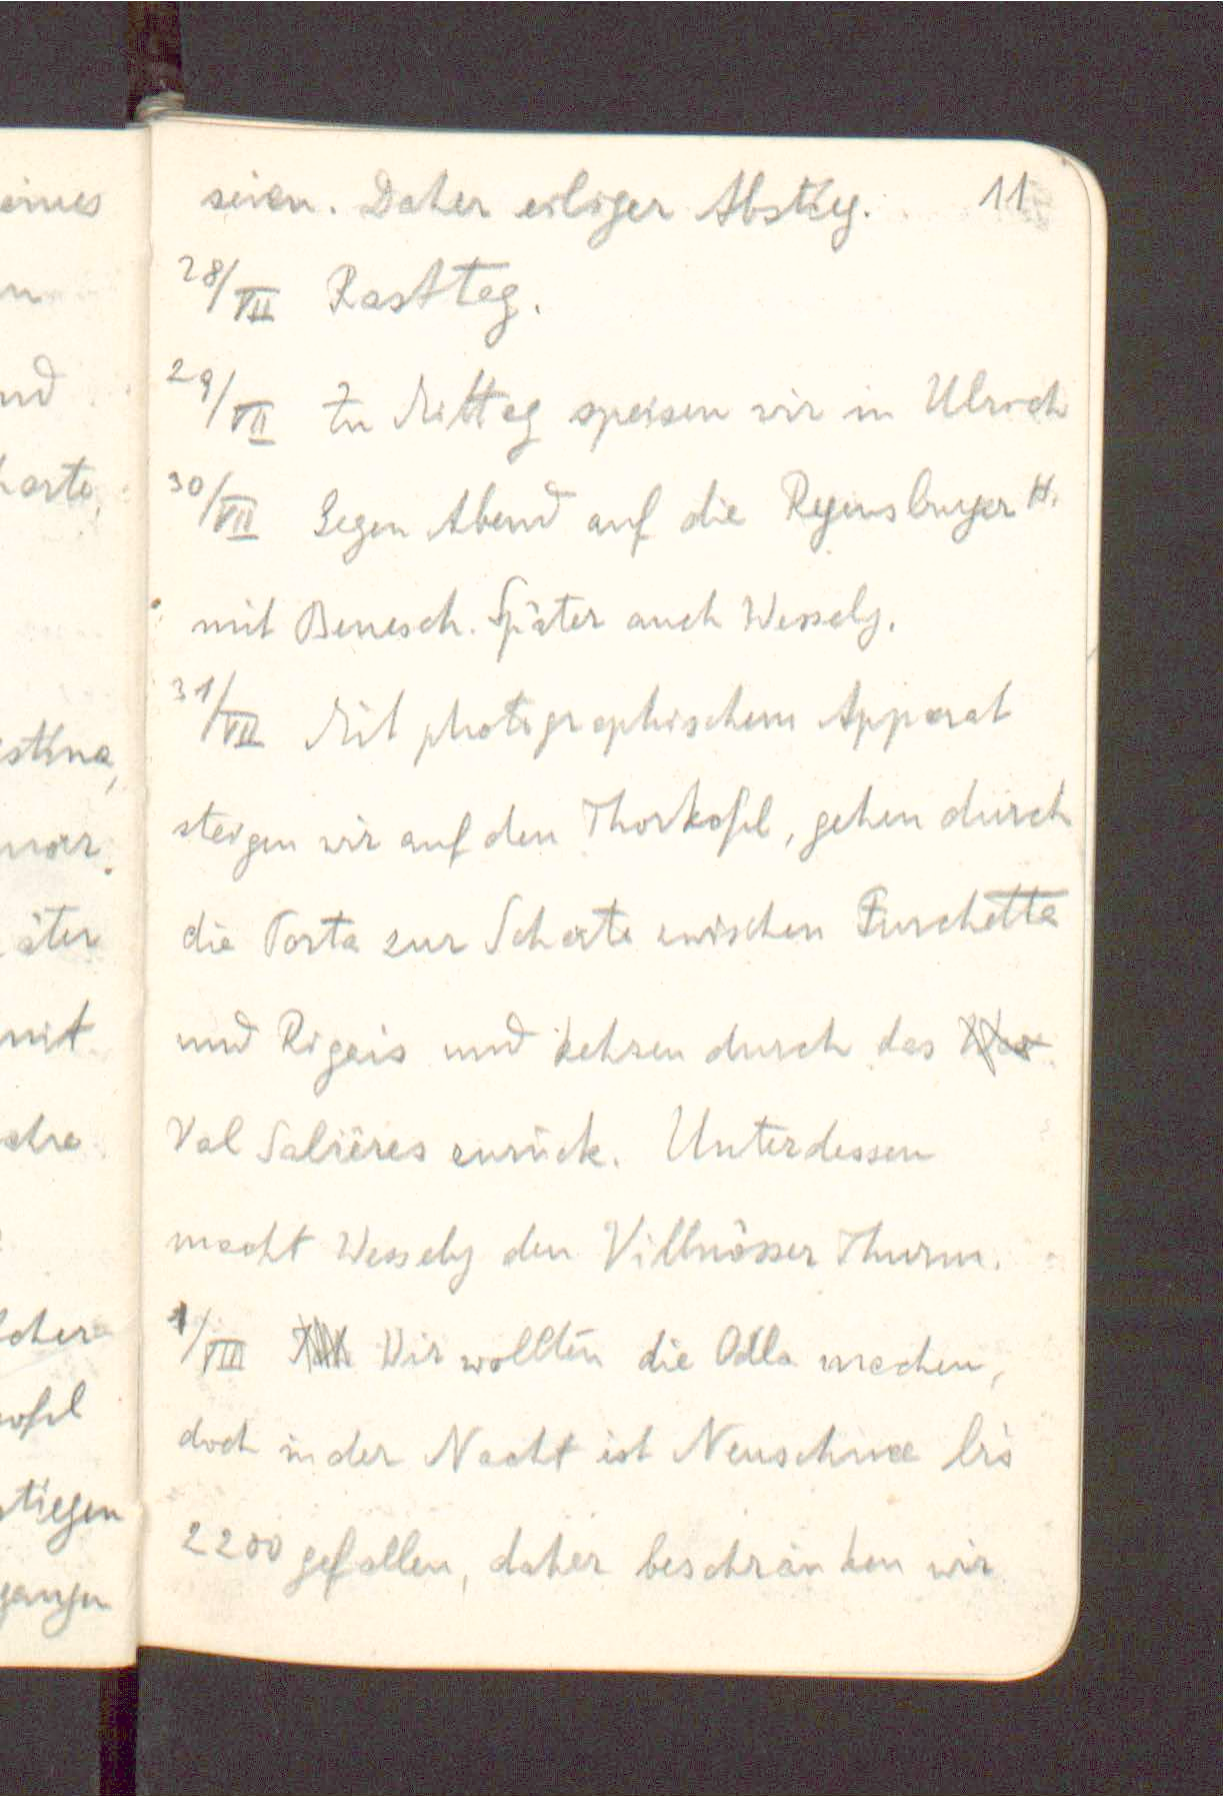 seien. Daher eiliger Abstieg. 11
28/VII Rasttag.
29/VII Zu Mittag speisen wir in Ulrich
30/VII Gegen Abend auf die Regensburger H.
mit Benesch. Später auch Wessely.
31/VII Mit photographischem Apparat
steigen wir auf den Thorkofel, gehen durch
die Porta zur Scharte zwischen Furchetta
und Rigais und kehren durch das
Val Salières zurück. Unterdessen
macht Wessely den Villnösser Thurm.
1/VIII Wir wollten die Odla machen,
doch in der Nacht ist Neuschnee bis
2200 gefallen, daher beschränken wir
eines
n
nd
harte.
stina,
mar.
äter
mit
cher
kofel
stiegen
gangen